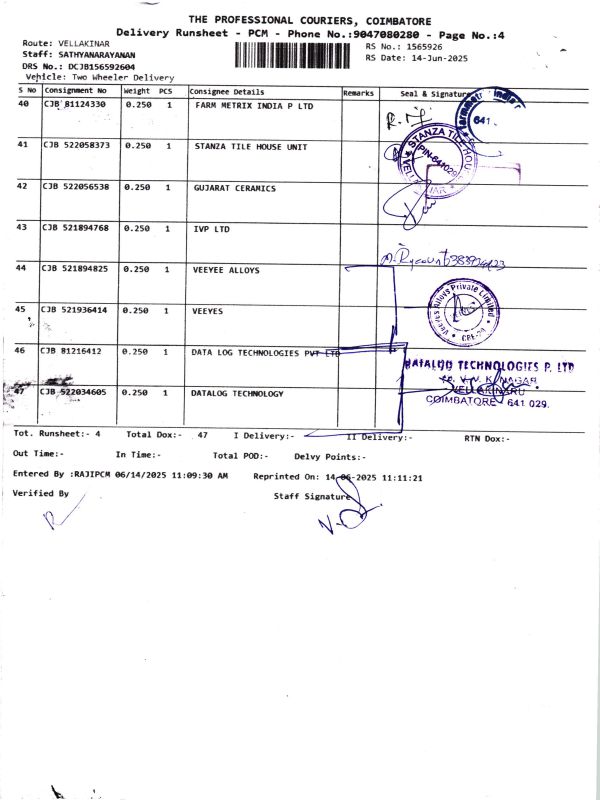 THE PROFESSIONAL COURIERS, COIMBATORE
Delivery Runsheet - PCM - Phone No.:9047080280 - Page No.:4
Route: VELLAKINAR RS No.: 1565926
Staff: SATHYANARAYANAN RS Date: 14-Jun-2025
DRS No.: DCJB156592604
Vehicle: Two Wheeler Delivery
S No Consignment No Weight PCS Consignee Details Remarks Seal & Signature
40 CJB 81124330 0.250 1 FARM METRIX INDIA P LTD
641
41 CJB 522058373 0.250 1 STANZA TILE HOUSE UNIT
STANZA TILE HOUSE
PIN-641029
42 CJB 522056538 0.250 1 GUJARAT CERAMICS
43 CJB 521894768 0.250 1 IVP LTD
44 CJB 521894825 0.250 1 VEEYEE ALLOYS
Veeyes Alloys Private Limited
45 CJB 521936414 0.250 1 VEEYES
46 CJB 81216412 0.250 1 DATA LOG TECHNOLOGIES PVT LTD
DATALOG TECHNOLOGIES P. LTD
V. K. NAGAR
VELLAKINARU
COIMBATORE - 641 029.
47 CJB 522034605 0.250 1 DATALOG TECHNOLOGY
Tot. Runsheet:- 4 Total Dox:- 47 I Delivery:- II Delivery:- RTN Dox:-
Out Time:- In Time:- Total POD:- Delvy Points:-
Entered By :RAJIPCM 06/14/2025 11:09:30 AM Reprinted On: 14-06-2025 11:11:21
Verified By Staff Signature